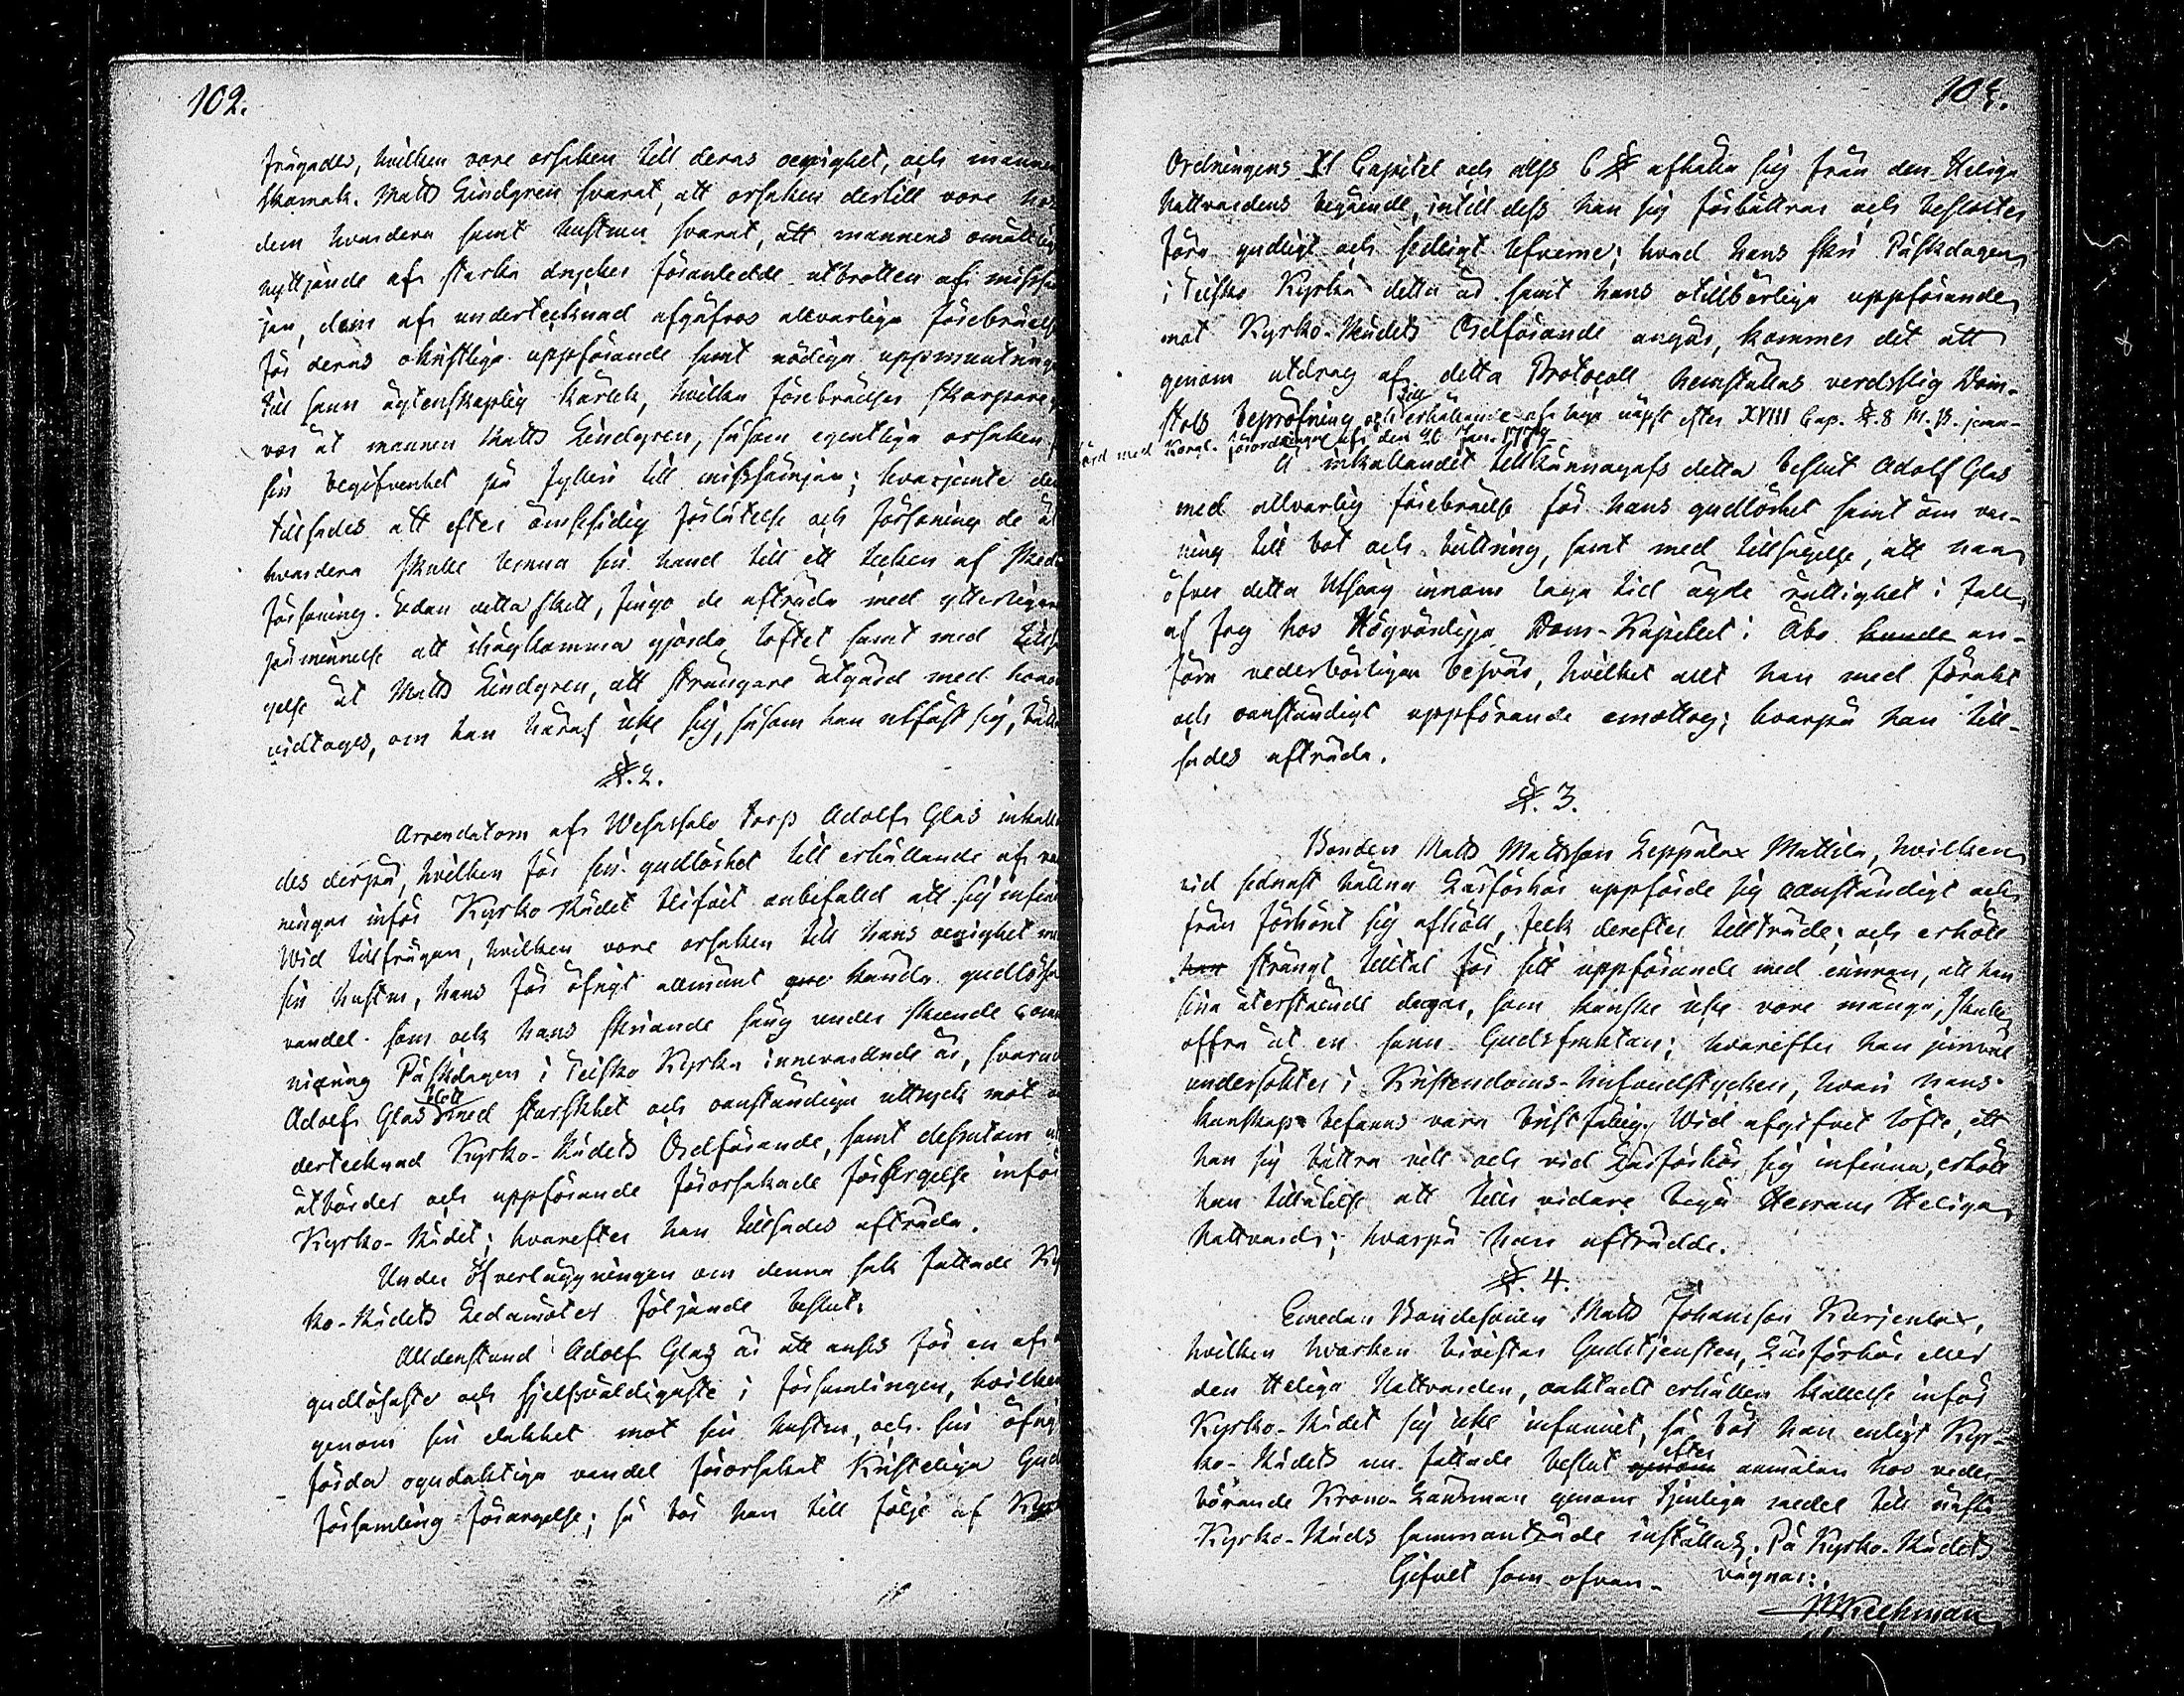 102.
frågades, hvilken vore orsaken till deras oenighet, och mannen
Skomak. Matts Lindgren svarat, att orsaken dertill vore hos
dem hvardera samt hustrun svarat, att mannens omåttliga
nyttjande af starka drycker föranledde utbrotten af missäm-
jan, dem af undertecknad afgåfvos allvarliga förebråelser
för deras okristliga uppförande samt nödiga uppmuntringar
till sann äktenskaplig kärlek, hvilka förebråelser skarpare
var åt mannen Matts Lindgren, såsom egentliga orsaken,
sin begifvenhet på fylleri till missämjan; hvarjemte de
tillsades att efter ömsesidig förlåtelse och försoning de åt
hvardera skulle lemna sin hand till ett tecken af skedd
försoning. Sedan detta skett, fingo de afträda med ytterligare
påminnelse att ihågkomma gjorda löftet samt med tillsä-
gelse åt Matts Lindgren, att strängare åtgärd med honom
vidtages, om han häraf icke sig, såsom han utfäst sig, bättrar
§. 2.
Arrendatorn af Wesassalo torp Adolf Glas inkalla-
des derpå, hvilken för sin gudlöshet till erhållande af var-
ningar inför Kyrko-Rådet blifvit anbefalld att sig infinna
Wid tillfrågan, hvilken vore orsaken till hans oenighet med
sin hustru, hans för öfrigt allmänt kända gudlösa
vandel som och hans skriande sång under skeende Commu-
nicering Påskdagen i Teisko Kyrka innevarande år, svarade
Adolf Glas blott med storskhet och oanständiga uttryck mot un-
dertecknad Kyrko-Rådets Ordförande, samt dessutom med
åtbörder och uppförande förorsakade förargelse inför
Kyrko-Rådet; hvarefter han tillsades afträda.
Under öfverläggningen om denna sak fattade Kyr-
ko-Rådets Ledamöter följande beslut:
Alldenstund Adolf Glas är att anses för en af de
gudlösaste och sjelfsväldigaste i församlingen, hvilken
genom sin elakhet mot sin hustru, och sin öfrigt
förda ogudaktiga vandel förorsakat Kristeliga Guds
församling förargelse; så bör han till följe af Kyrko
104.
Ordningens XI Capitel och dess 6 § afhålla sig från den Heliga
Nattvardens begående, intill dess han sig förbättrar och beslutes
föra gudligt och sedligt lefverne; hvad hans skri Påskdagen
i Teisko Kyrka detta år samt hans otillbörliga uppförande
mot Kyrko-Rådets Ordförande angår, kommer det att
genom utdrag af detta Protocoll hemställas verdslig Dom-
stols bepröfning och till erhållande af laga näpst efter XVIII Cap. §. 8 M. B. jem-
förd med Kongl. Förordningen af den 26 Jan. 1779.
Å inkallandet tillkännagafs detta beslut Adolf Glas
med allvarlig förebråelse för hans gudlöshet samt om var-
ning till bot och bättring, samt med tillsägelse, att han
öfver detta Utslag innom laga tid ägde rättighet i fall
af Jag hos Högvördiga Dom-Kapitlet i Åbo kunde an-
föra vederbörligen besvär, hvilket allt han med förakt
och oanständigt uppförande emottog; hvarpå han till-
sades afträda.
§. 3.
Bonden Matts Mattsson Leppälax Mattila, hvilken
vid sednast hållna Läsförhör uppförde sig oanständigt och
från förhöret sig afhöll, feck derefter tillträde; och erhöll
han strängt tilltal för sitt uppförande med erinran, att han
sina återstående dagar, som kanske icke vore många, skulle
offra åt en sann Gudsfruktan; hvarefter han jemväl
undersöktes i Kristendoms-hufvudstycken, hvari hans
kunskap befanns vara bristfällig. Wid afgifvet löfte, att
han sig bättra vill och vid Läsförhör sig infinna, erhöll
han tillåtelse att tills vidare begå Herrans Heliga
Nattvard; hvarpå han afträdde.
§. 4.
Emedan Bondesonen Matts Johansson Kurjenlax,
hvilken hvarken bivistar Gudstjensten, Läsförhör eller
den Heliga Nattvarden, oaktadt erhållen kallelse inför
Kyrko-Rådet sig icke infunnit, så bör han enligt Kyr-
ko-Rådets nu fattade beslut genom efter anmälan hos veder-
börande Krono-Länsman genom tjenliga medel till nästa
Kyrko-Råds sammanträde inställas. På Kyrko-Rådets
Gifvet som ofvan.
vägnar: